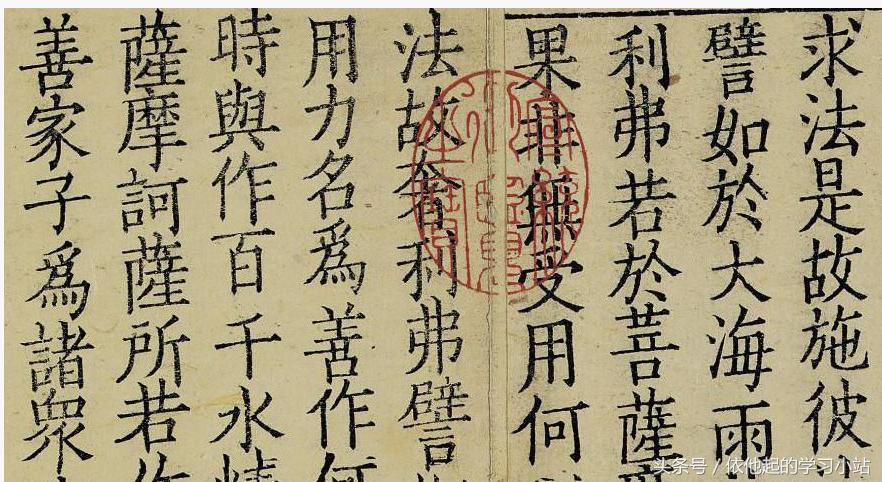 求法是故施彼
譬如於大海雨
利弗若於菩薩
果非無受用何
法故奢利弗譬
用力名爲善作何
時與作百千水精
薩摩訶薩所若作
善家子爲諸衆
头条号 / 依他起的学习小站